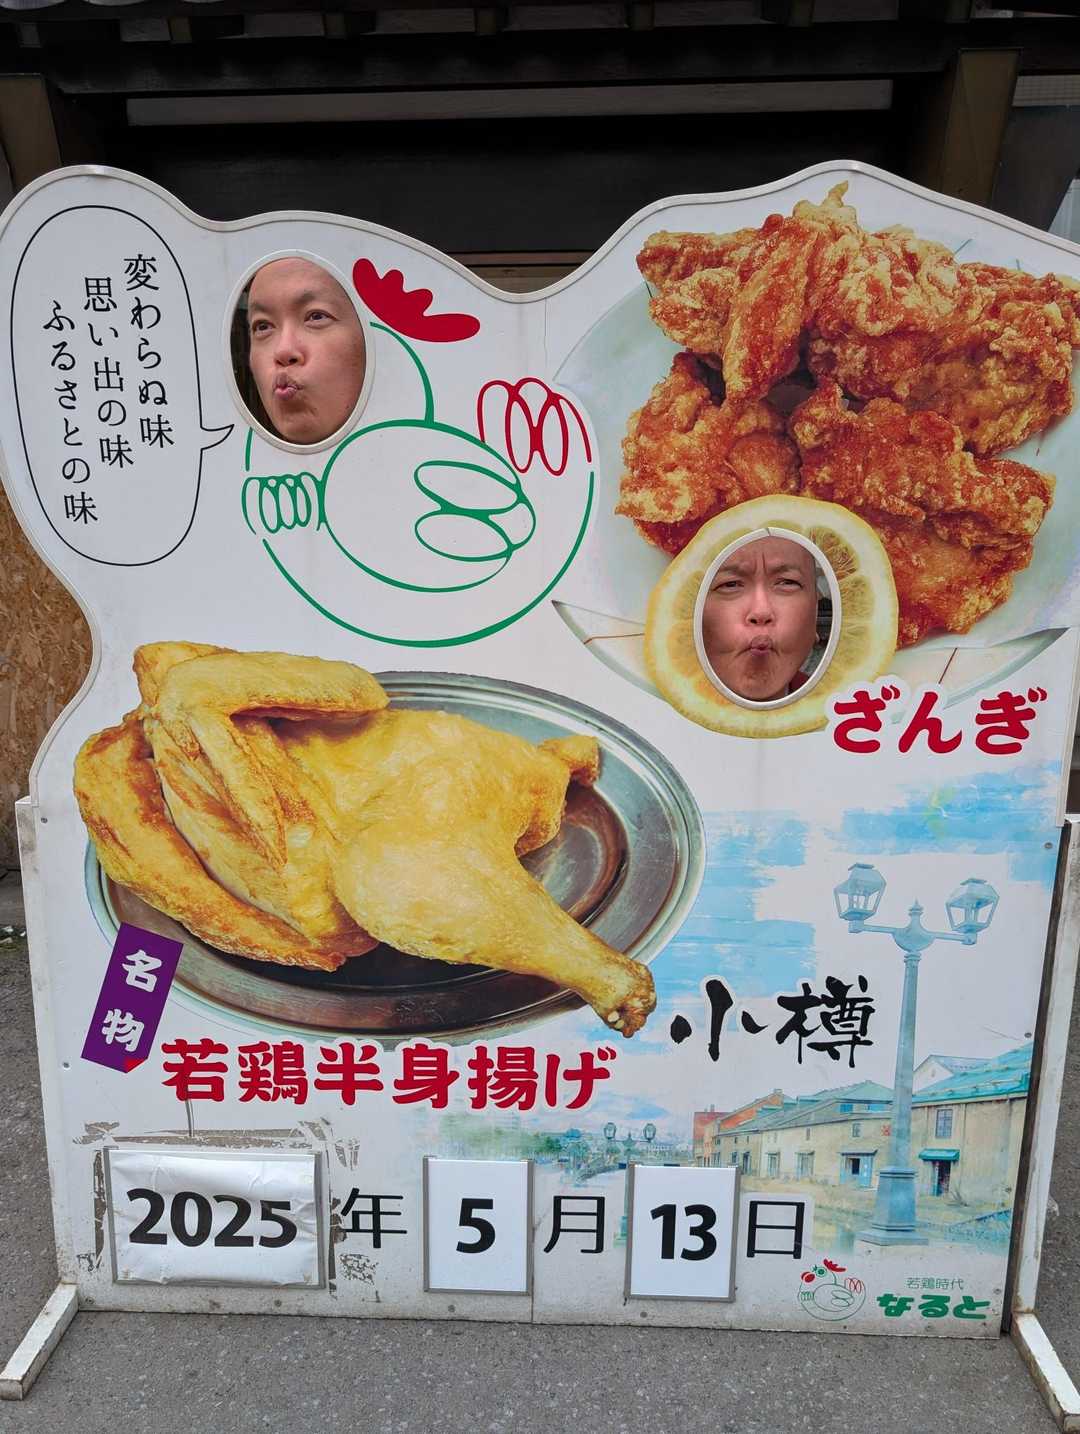 変わらぬ味
思い出の味
ふるさとの味
ざんぎ
名物
若鶏半身揚げ
小樽
2025年5月13日
若鶏時代
なると